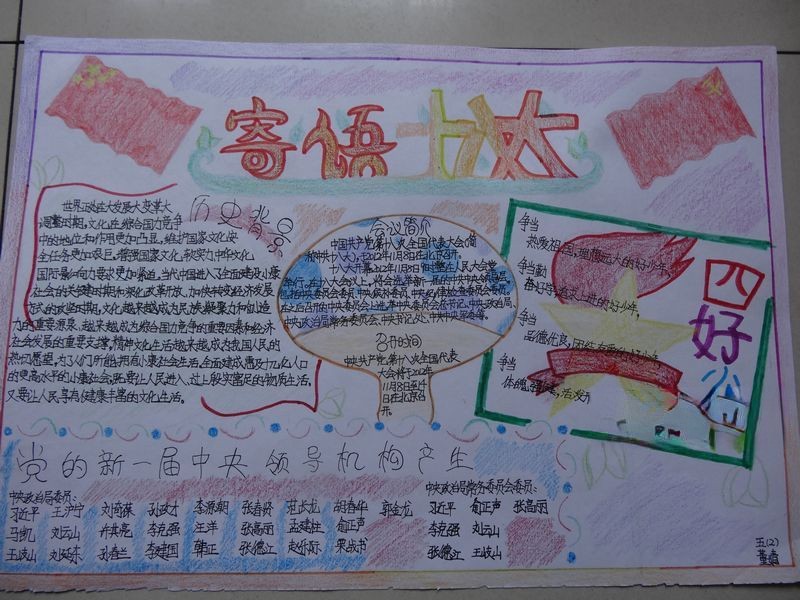 寄语十八大
历史背景
世界正处在大发展大变革大
调整时期,文化在综合国力竞争
中的地位和作用更加凸显,维护国家文化安
全任务更加艰巨,增强国家文化软实力中华文化
国际影响力要求更加紧迫,当代中国进入了全面建设小康
社会的关键时期和深化改革开放、加快转变经济发展
方式的攻坚时期,文化越来越成为民族凝聚力和创造
力的重要源泉、越来越成为综合国力竞争的重要因素和经济
社会发展的重要支撑,精神文化生活越来越成为我国人民的
热切愿望,为了人们所能拥有小康社会生活,全面建成惠及十几亿人口
的更高水平的小康社会,既要让人民进入、过上殷实富足的物质生活,
又要让人民享有健康丰富的文化生活。
会议简介
中国共产党第十八次全国代表大会(简
称中共十八大),于2012年11月8日在北京召开。
十八大开幕2012年11月8日
中央政治局常务委员会、中央书记处、中央军委等。
召开时间
中共共产党第十八次全国代表
大会将于2012年
11月8日至14
日在北京召
开。
四好少
争当
热爱祖国,理想远大的好少年,
争当勤
奋好学,追求上进的好少年,
争当
品德优良,团结友爱的好少年
争当
体魄强健,活泼开
党的新一届中央领导机构产生
中央政治局委员:
习近平 王沪宁 刘奇葆 孙政才 李源朝 张春贤 范长龙 胡春华 郭金龙
马凯 刘云山 许其亮 李克强 汪洋 张高丽 孟建柱 俞正声
王岐山 刘延东 孙春兰 李建国 韩正 张德江 赵乐际 栗战书
中央政治局常务委员会委员:
习近平 俞正声 张高丽
李克强 刘云山
张德江 王岐山
五(2)